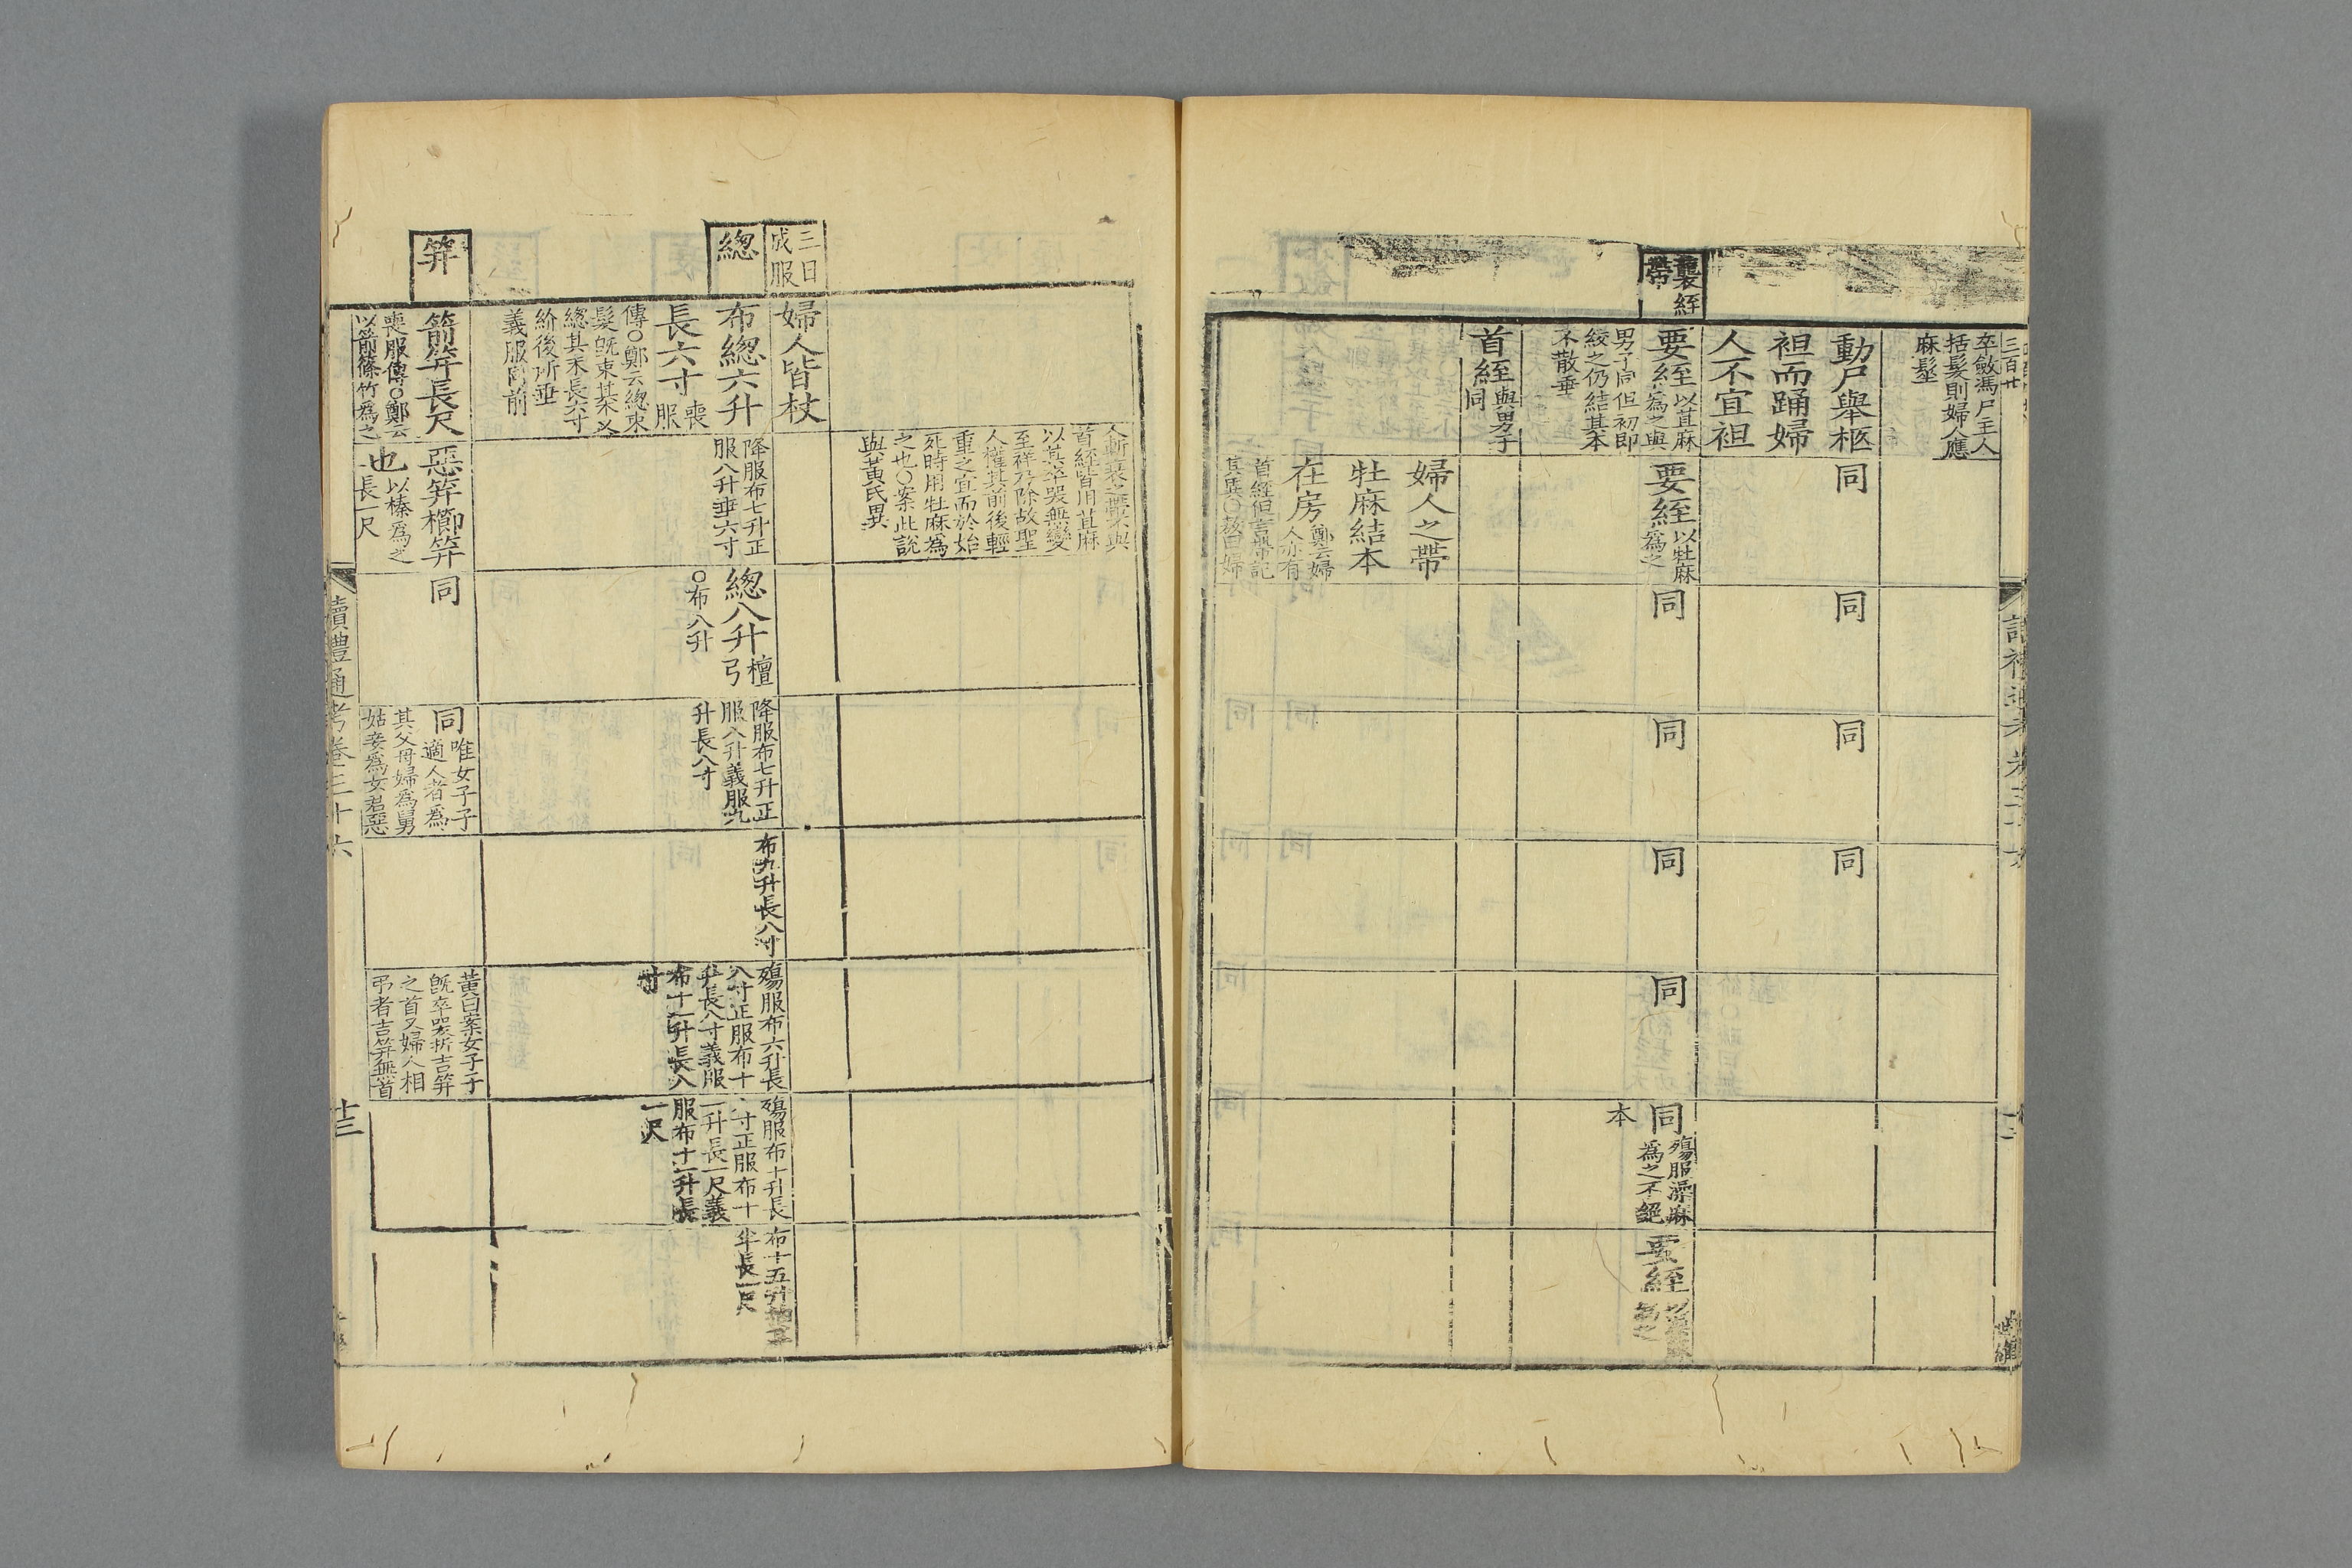 三百廿
卒斂馮尸主人
括髮則婦人應
麻髽
動尸舉柩
袒而踊婦
人不宜袒
同
同
同
同
襲絰
帶
要絰以苴麻
爲之與
男子同但初即
絞之仍結其本
不散垂
要絰以牡麻
爲之
同
同
同
同
同殤服澡麻
爲之不絕
本
要絰
首絰與男子
同
婦人之帶
牡麻結本
在房鄭云婦
人亦有
首絰但言帶記
其異○敖曰婦
人斬衰之帶與
首絰皆用苴麻
以其卒哭無變
至祥乃除故聖
人權其前後輕
重之宜而於始
死時用牡麻爲
之也○案此說
與黃氏異
三日
成服
婦人皆杖
總
布總六升
長六寸喪
服
傳○鄭云總束
髮旣束其本又
總其末長六寸
紒後所垂
義服同前
降服布七升正
服八升垂六寸
總八升檀
弓
○布八升
降服布七升正
服八升義服九
升長八寸
布九升長八寸
殤服布六升長
八寸正服布十
升長八寸義服
布十一升長八
寸
殤服布十升長
寸正服布十
一升長一尺義
服布十二升長
一尺
布十五升抽其
半長一尺
笄
箭笄長尺
喪服傳○鄭云
以箭篠竹爲之
惡笄櫛笄
也以榛爲之
長一尺
同
同唯女子子
適人者爲
其父母婦爲舅
姑妾爲女君惡
黃曰案女子子
旣卒哭折吉笄
之首又婦人相
弔者吉笄無首
讀禮通考卷三十六
十三